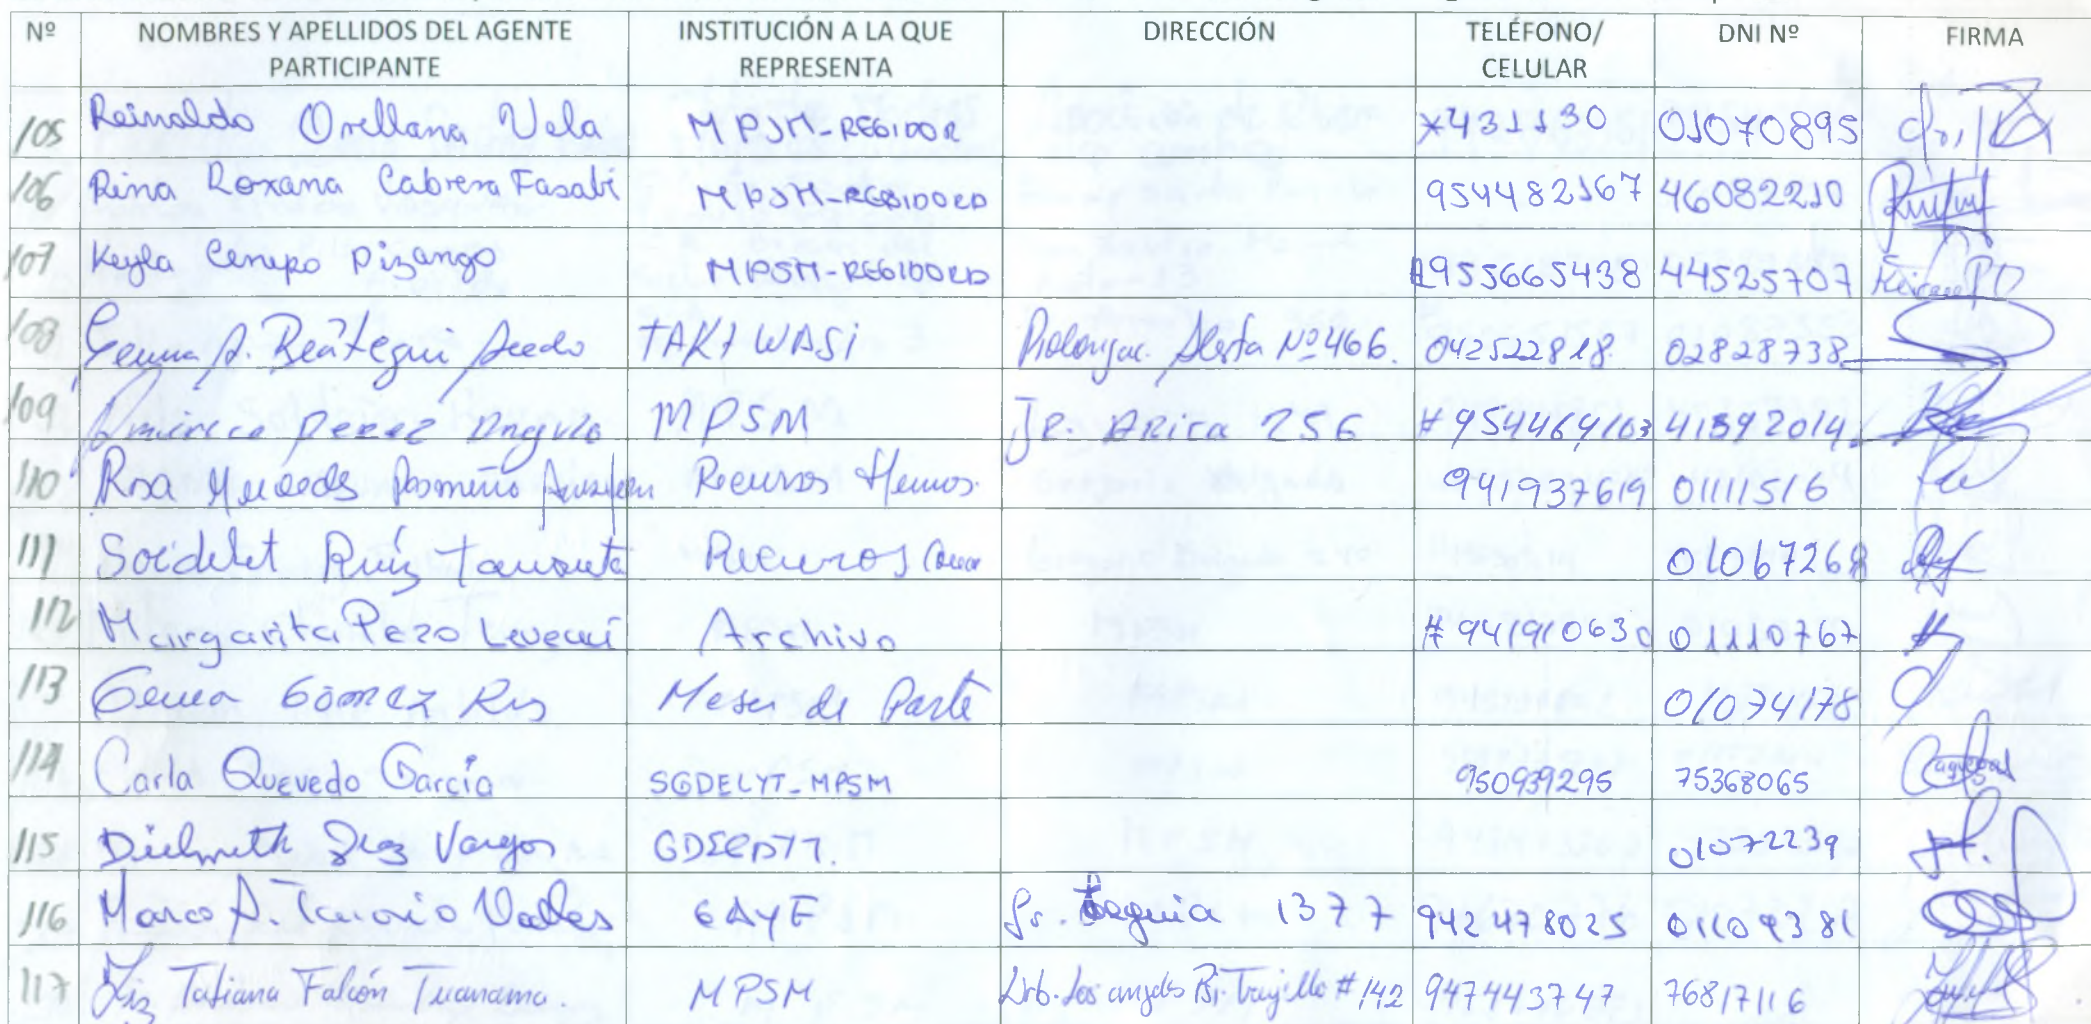 Nº NOMBRES Y APELLIDOS DEL AGENTE PARTICIPANTE INSTITUCIÓN A LA QUE REPRESENTA DIRECCIÓN TELÉFONO/ CELULAR DNI Nº FIRMA
105 Reinaldo Orellana Vela MPSM-REGIDOR *431130 01070895
106 Rina Roxana Cabrera Fasabi MPSM-REGIDORA 954482167 46082210
107 Keyla Cenepo Pizango MPSM-REGIDORA 955665438 44525707
108 A. Reátegui TAKIWASI Prolongac. Alerta Nº 466. 042522818 02828738
109 Perez Angulo MPSM JR. ARICA 256 #954464103 41892014
110 Rosa Mercedes Recursos 941937619 01111516
111 Soidelet Ruíz 01067268
112 Margarita Pezo Archivo #941910630 01110767
113 Gómez Mesa de Parte 01074178
114 Carla Quevedo García SGDELYT-MPSM 950939295 75368065
115 Vargas 01072239
116 Marco A. GAYF Jr. Leguia 1377 942478025 01109381
117 Liz Tatiana Falcón Tuanama. MPSM Urb. Los angeles Trujillo #142 947443747 76817116